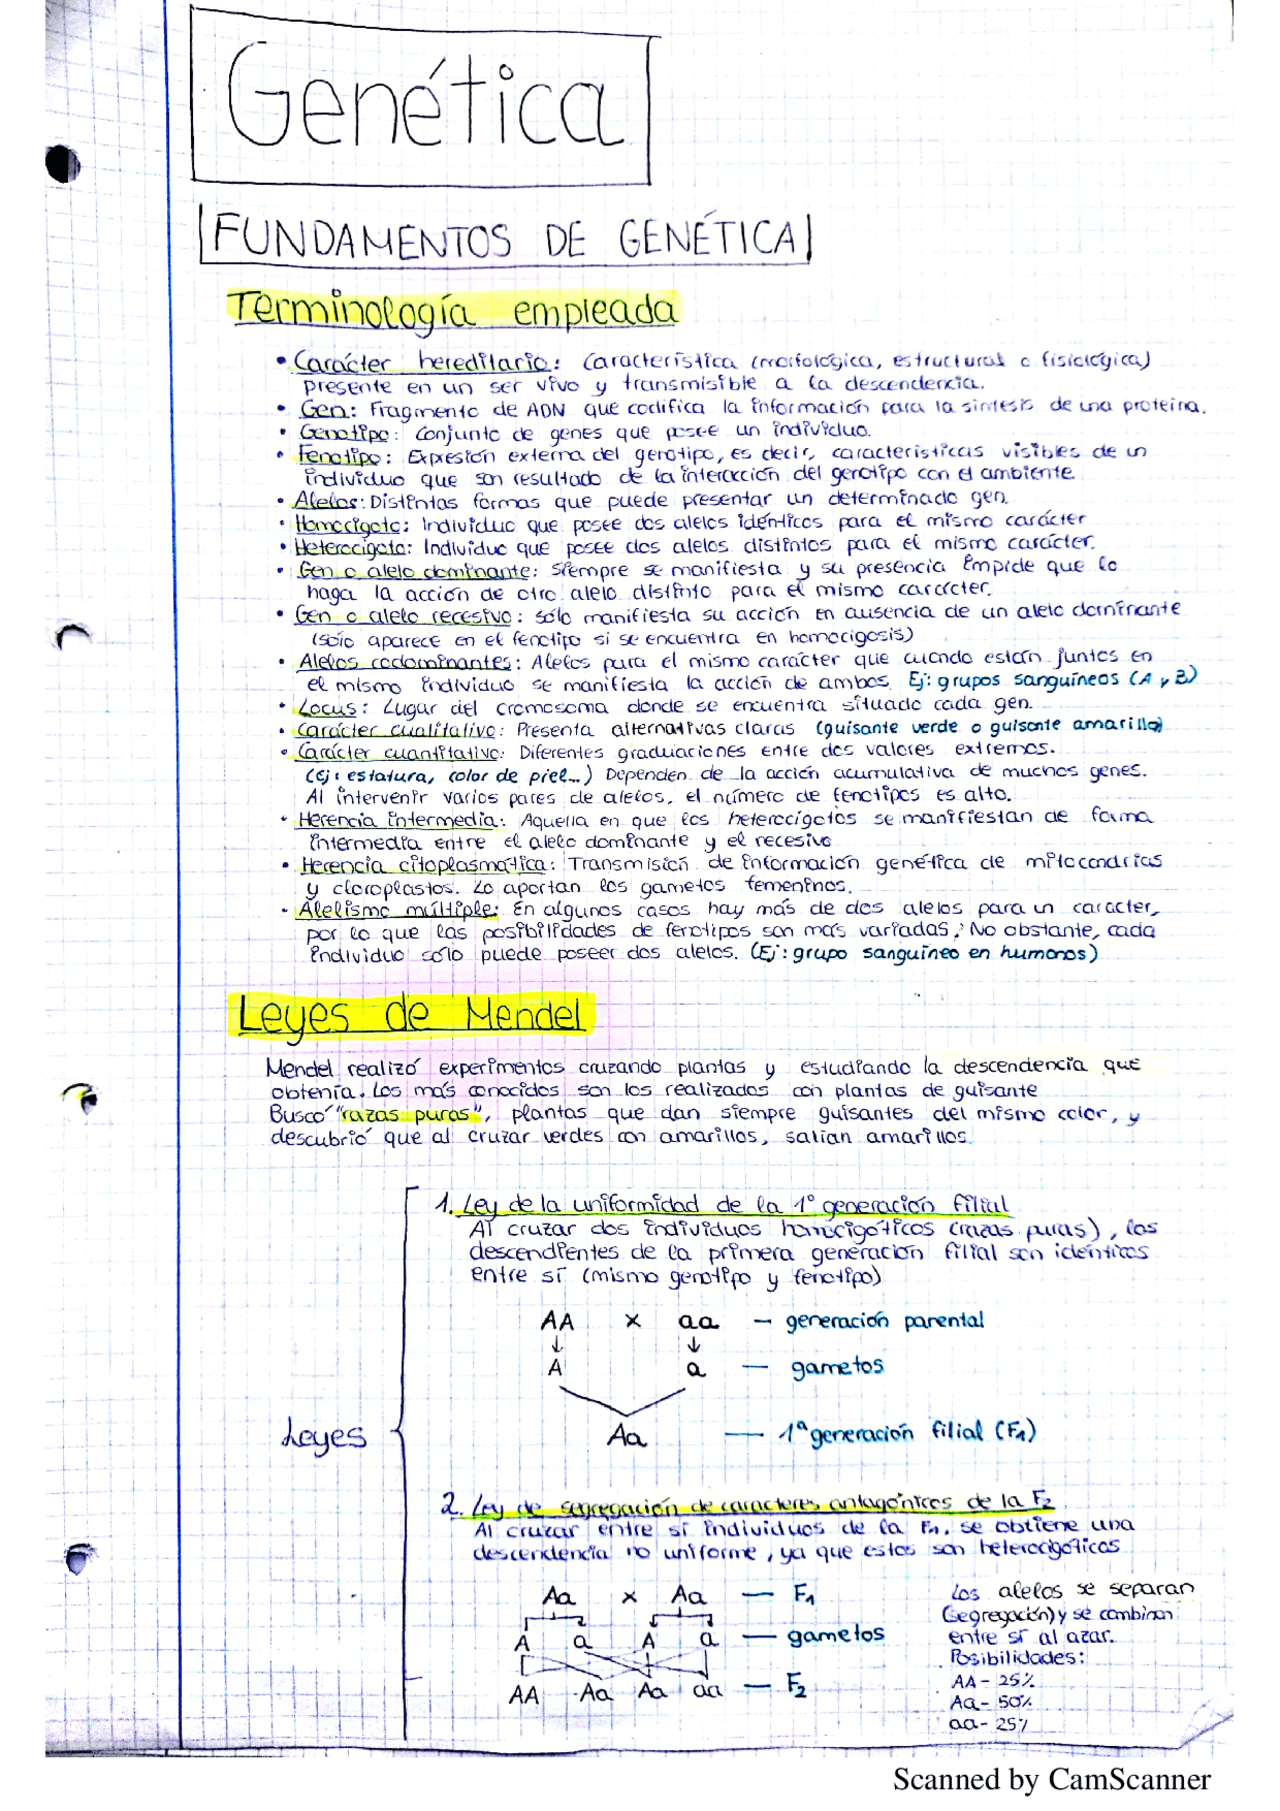 Genética
FUNDAMENTOS DE GENÉTICA
Terminología empleada
• Carácter hereditario: Característica (morfológica, estructural o fisiológica)
presente en un ser vivo y transmisible a la descendencia.
• Gen: Fragmento de ADN que codifica la información para la síntesis de una proteína.
• Genotipo: Conjunto de genes que posee un individuo.
• Fenotipo: Expresión externa del genotipo, es decir, características visibles de un
individuo que son resultado de la interacción del genotipo con el ambiente.
• Alelos: Distintas formas que puede presentar un determinado gen.
• Homocigoto: Individuo que posee dos alelos idénticos para el mismo carácter
• Heterocigoto: Individuo que posee dos alelos distintos para el mismo carácter.
• Gen o alelo dominante: Siempre se manifiesta y su presencia impide que lo
haga la acción de otro alelo distinto para el mismo carácter.
• Gen o alelo recesivo: sólo manifiesta su acción en ausencia de un alelo dominante
(sólo aparece en el fenotipo si se encuentra en homocigosis)
• Alelos codominantes: Alelos para el mismo carácter que cuando están juntos en
el mismo individuo se manifiesta la acción de ambos. Ej: grupos sanguíneos (A y B)
• Locus: Lugar del cromosoma donde se encuentra situado cada gen.
• Carácter cualitativo: Presenta alternativas claras (guisante verde o guisante amarillo)
• Carácter cuantitativo: Diferentes graduaciones entre dos valores extremos.
(Ej: estatura, color de piel...) Dependen de la acción acumulativa de muchos genes.
Al intervenir varios pares de alelos, el número de fenotipos es alto.
• Herencia intermedia: Aquella en que los heterocigotos se manifiestan de forma
intermedia entre el alelo dominante y el recesivo
• Herencia citoplasmática: Transmisión de información genética de mitocondrias
y cloroplastos. Lo aportan los gametos femeninos.
• Alelismo múltiple: En algunos casos hay más de dos alelos para un carácter,
por lo que las posibilidades de fenotipos son más variadas. No obstante, cada
individuo sólo puede poseer dos alelos. (Ej: grupo sanguíneo en humanos)
Leyes de Mendel
Mendel realizó experimentos cruzando plantas y estudiando la descendencia que
obtenía. Los más conocidos son los realizados con plantas de guisante
Buscó "razas puras", plantas que dan siempre guisantes del mismo color, y
descubrió que al cruzar verdes con amarillos, salían amarillos.
Leyes
1. Ley de la uniformidad de la 1º generación filial
Al cruzar dos individuos homocigóticos (razas puras), los
descendientes de la primera generación filial son idénticos
entre sí (mismo genotipo y fenotipo)
AA x aa — generación parental
A a — gametos
Aa — 1ª generación filial (F1)
2. Ley de segregación de caracteres antagónicos de la F2
Al cruzar entre sí individuos de la F1, se obtiene una
descendencia no uniforme, ya que estos son heterocigóticos
Aa x Aa — F1
A a A a — gametos
AA Aa Aa aa — F2
Los alelos se separan
(segregación) y se combinan
entre sí al azar.
Posibilidades:
AA - 25%
Aa - 50%
aa - 25%
Scanned by CamScanner